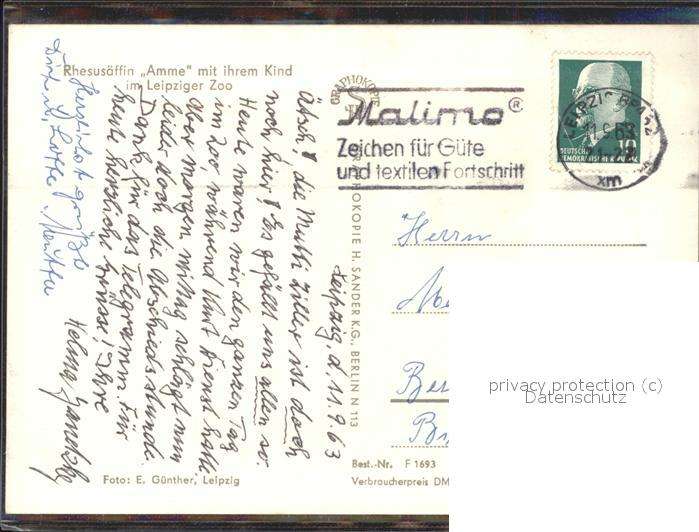 Rhesusäffin „Amme“ mit ihrem Kind
im Leipziger Zoo
GRAPHOKOPIE
Malimo®
Zeichen für Güte
und textilen Fortschritt
LEIPZIG BPA 32
11.9.63
xm
DEUTSCHE
DEMOKRATISCHE REPUBLIK
10
Leipzig, d. 11.9.63
Ätsch! die Mutti Ziller ist doch
noch hier! Es gefällt uns allen so.
Heute waren wir den ganzen Tag
im Zoo, während Kurt Dienst hatte.
Über morgen mittag schlägt nun
leider doch die Abschiedsstunde.
Dank für das Telegramm. Für
heute herzliche Grüsse! Ihre
Helma
Herzliche Grüße
Lotte, Mutter
Herrn
GRAPHOKOPIE H. SANDER K.G., BERLIN N 113
privacy protection (c)
Datenschutz
Best.-Nr. F 1693
Verbraucherpreis DM
Foto: E. Günther, Leipzig